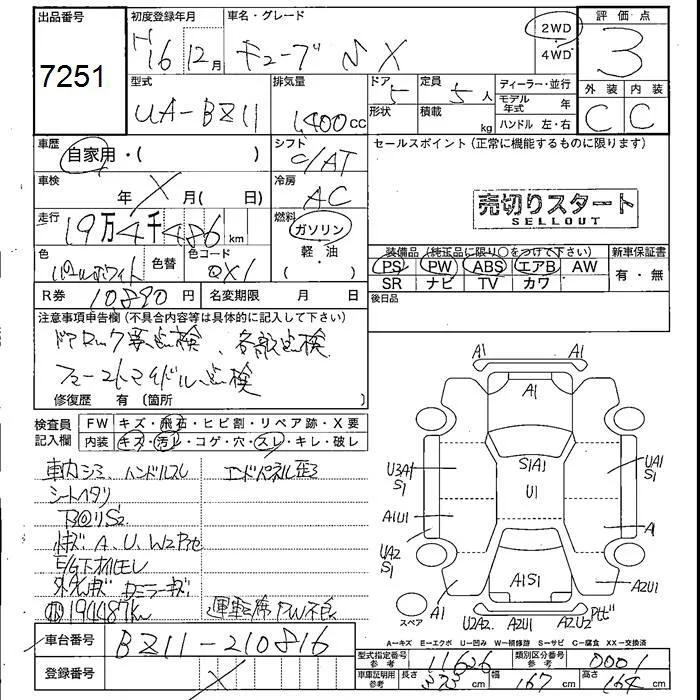 出品番号 初度登録年月 車名・グレード 評価点
7251 H16 12月 キューブ X 2WD・4WD 3
型式 排気量 ドア 定員 ディーラー・並行 外装 内装
UA-BZ11 1,400cc 5 5人 モデル年式 年 C C
形状 積載 kg ハンドル 左・右
車歴 シフト セールスポイント(正常に機能するものに限ります)
自家用・( ) C/AT
車検 冷房
年 X 月( 日) AC 売切りスタート
SELLOUT
走行 燃料
19万4千486km ガソリン・軽・油( ) 装備品(純正品に限り○をつけて下さい) 新車保証書
色 色替 色コード PS PW ABS エアB AW 有・無
パールホワイト QX1 SR ナビ TV カワ
R券 10890円 名変期限 月 日 後日品
注意事項申告欄(不具合内容等は具体的に記入して下さい)
ドアロック要点検、各部点検
修復歴 有(箇所 )
検査員記入欄 FW キズ・飛石・ヒビ割・リペア跡・X要
内装 キズ・汚レ・コゲ・穴・スレ・キレ・破レ
車内シミ、ハンドルスレ エンドパネル歪
シートヘタリ
小キズ A、U、W2
E/G下オイルモレ
194487km 運転席PW不良
A1 A1
A1
U3A1 S1 S1A1 UA1 S1
U1
A1U1 A1
UA2 S1
A1S1
A1 A2U1
スペア U2A2 A2U1 A2U2
A-キズ E-エクボ U-凹み W-補修跡 S-サビ C-腐食 XX-交換済
車台番号 BZ11-210816
型式指定番号 参考 11626 類別区分番号 参考 0001
登録番号 X
車庫証明用 参考 長さ cm 幅 167 cm 高さ 164 cm